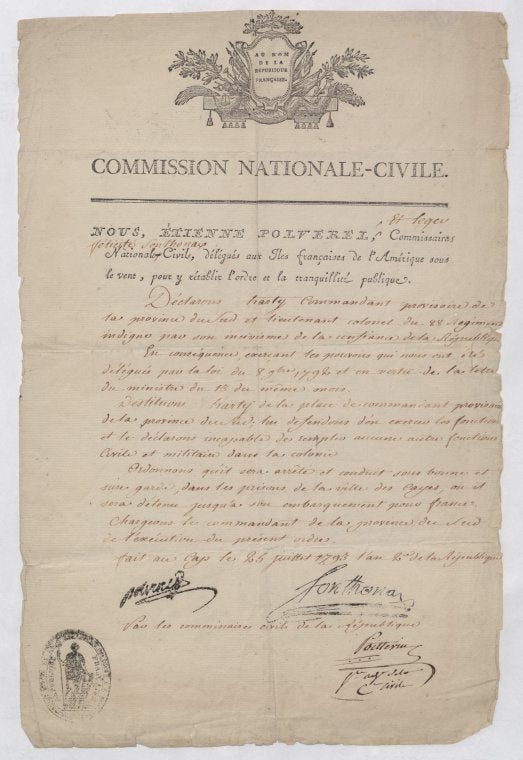 AU NOM
DE LA
RÉPUBLIQUE
FRANÇAISE.
COMMISSION NATIONALE-CIVILE.
NOUS, ÉTIENNE POLVEREL, & leger
félicité Sonthonax Commissaires
Nationals-Civils, délégués aux Iles françaises de l'Amérique sous
le vent, pour y rétablir l'ordre et la tranquillité publique.
Déclarons harty Commandant provisoire de
la province du Sud et lieutenant colonel du 88 Regiment
indigne par son incivisme de la confiance de la République
En consequence, exerçant les pouvoirs qui nous ont été
délégués par la loi du 8 9bre 1792 et en vertu de la lettre
du ministre du 13 du même mois.
Destituons harty de la place de commandant provisoire
de la province du Sud, lui defendons d'en exercer les fonctions
et le déclarons incapable de remplir aucune autre fonctions
Civile et militaire dans la colonie
Ordonnons qu'il sera arrêté et conduit sous bonne et
sure garde, dans les prisons de la ville des Cayes, ou il
sera détenu jusqu'a son embarquement pour france.
Chargeons le commandant de la province du Sud
de l'execution du présent ordre.
fait au Cap le 25 juillet 1793 l'an 2e de la République
polverel Sonthonax
Par les commissaires civils de la République